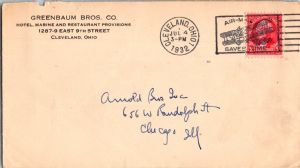 GREENBAUM BROS. CO.
HOTEL, MARINE AND RESTAURANT PROVISIONS
1287-9 EAST 9TH STREET
CLEVELAND, OHIO
CLEVELAND, OHIO
JUL 4
3-PM
1932
AIR-M
SAVES
Arnold Bros Inc
656 W Randolph St
Chicago Ill.